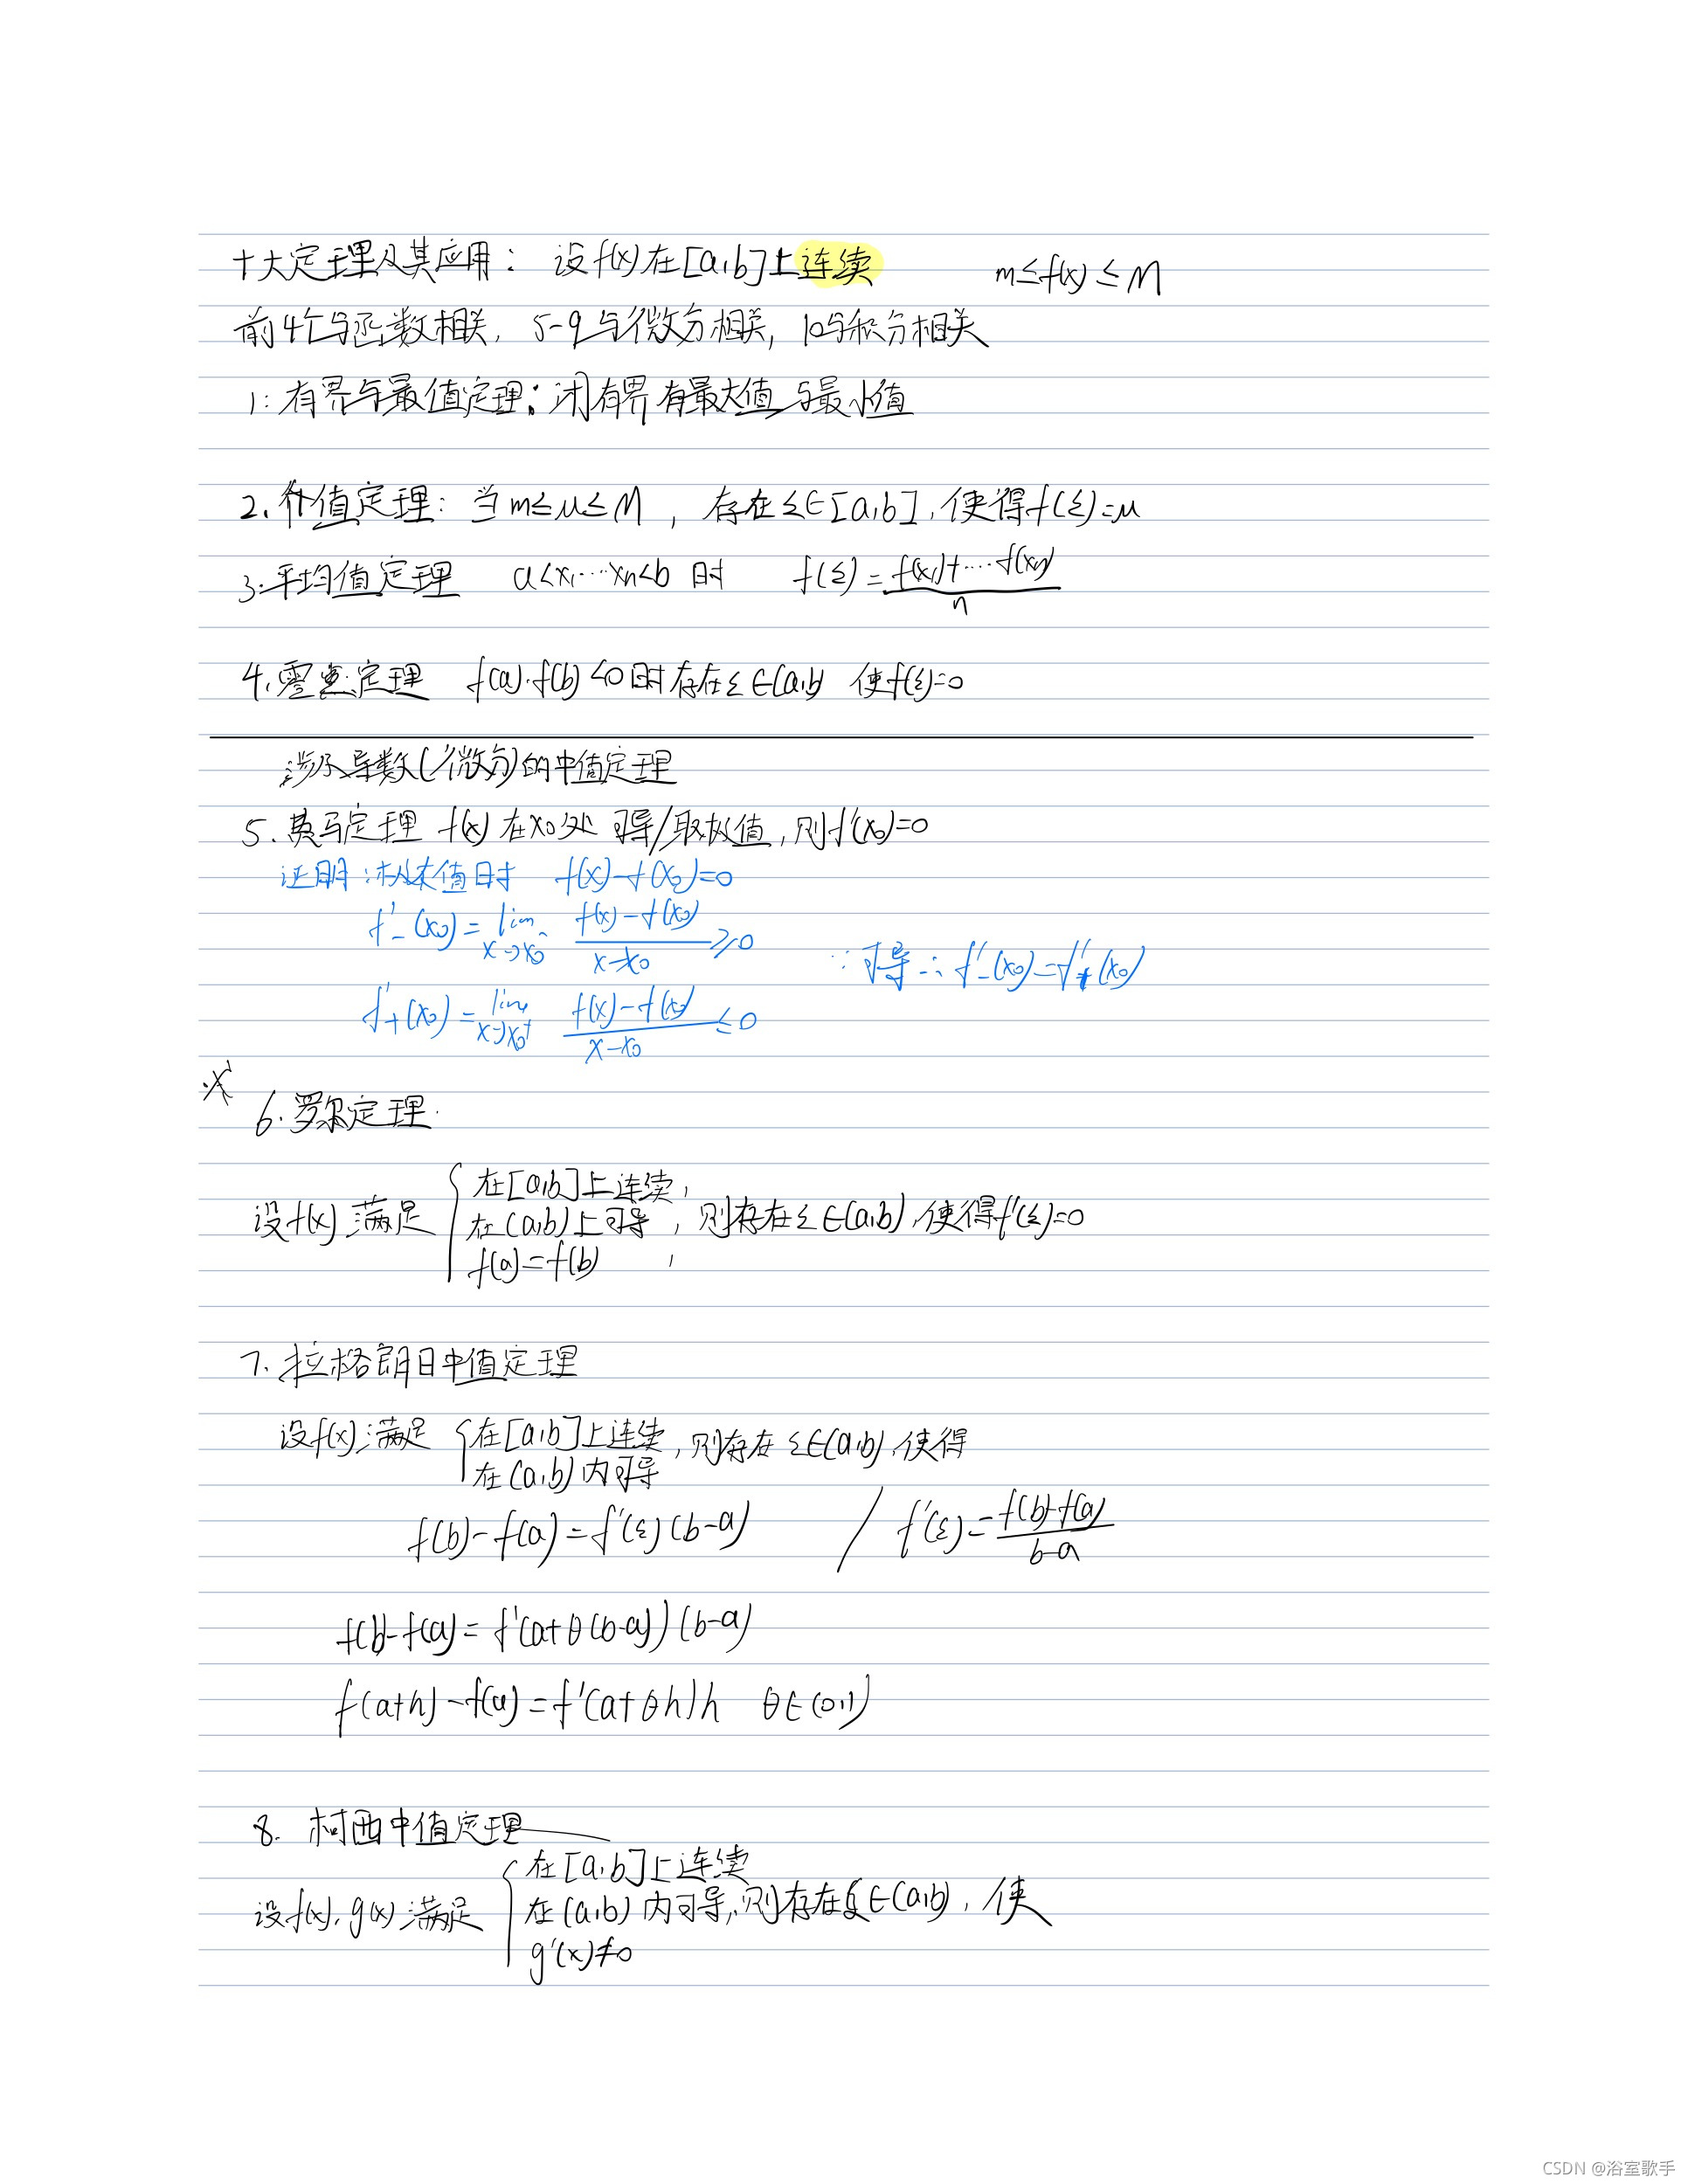 十大定理及其应用： 设f(x)在[a,b]上连续 m≤f(x)≤M
前4个与函数相关，5-9与微分相关，10与积分相关
1：有界与最值定理：闭有界有最大值与最小值
2.介值定理：当m≤μ≤M，存在ξ∈[a,b]，使得f(ξ)=μ
3.平均值定理 a<x₁…xₙ<b 时 f(ξ)=(f(x₁)+…f(xₙ))/n
4.零点定理 f(a)·f(b)<0时存在ξ∈(a,b) 使f(ξ)=0
涉及导数(微分)的中值定理
5.费马定理 f(x)在x₀处 可导/取极值，则f'(x₀)=0
证明：极大值时 f(x)-f(x₀)=0
f'₋(x₀)=lim x→x₀⁻ (f(x)-f(x₀))/(x-x₀)≥0
∵可导∴f'₋(x₀)=f'₊(x₀)
f'₊(x₀)=lim x→x₀⁺ (f(x)-f(x₀))/(x-x₀)≤0
6.罗尔定理.
设f(x)满足 { 在[a,b]上连续，
在(a,b)上可导，则存在ξ∈(a,b)，使得f'(ξ)=0
f(a)=f(b)，
7.拉格朗日中值定理
设f(x)满足 { 在[a,b]上连续，则存在ξ∈(a,b)，使得
在(a,b)内可导
f(b)-f(a)=f'(ξ)(b-a) / f'(ξ)=(f(b)-f(a))/(b-a)
f(b)-f(a)=f'(a+θ(b-a))(b-a)
f(a+h)-f(a)=f'(a+θh)h θ∈(0,1)
8. 柯西中值定理
设f(x),g(x)满足 { 在[a,b]上连续
在(a,b)内可导，则存在ξ∈(a,b)，使
g'(x)≠0
CSDN @浴室歌手